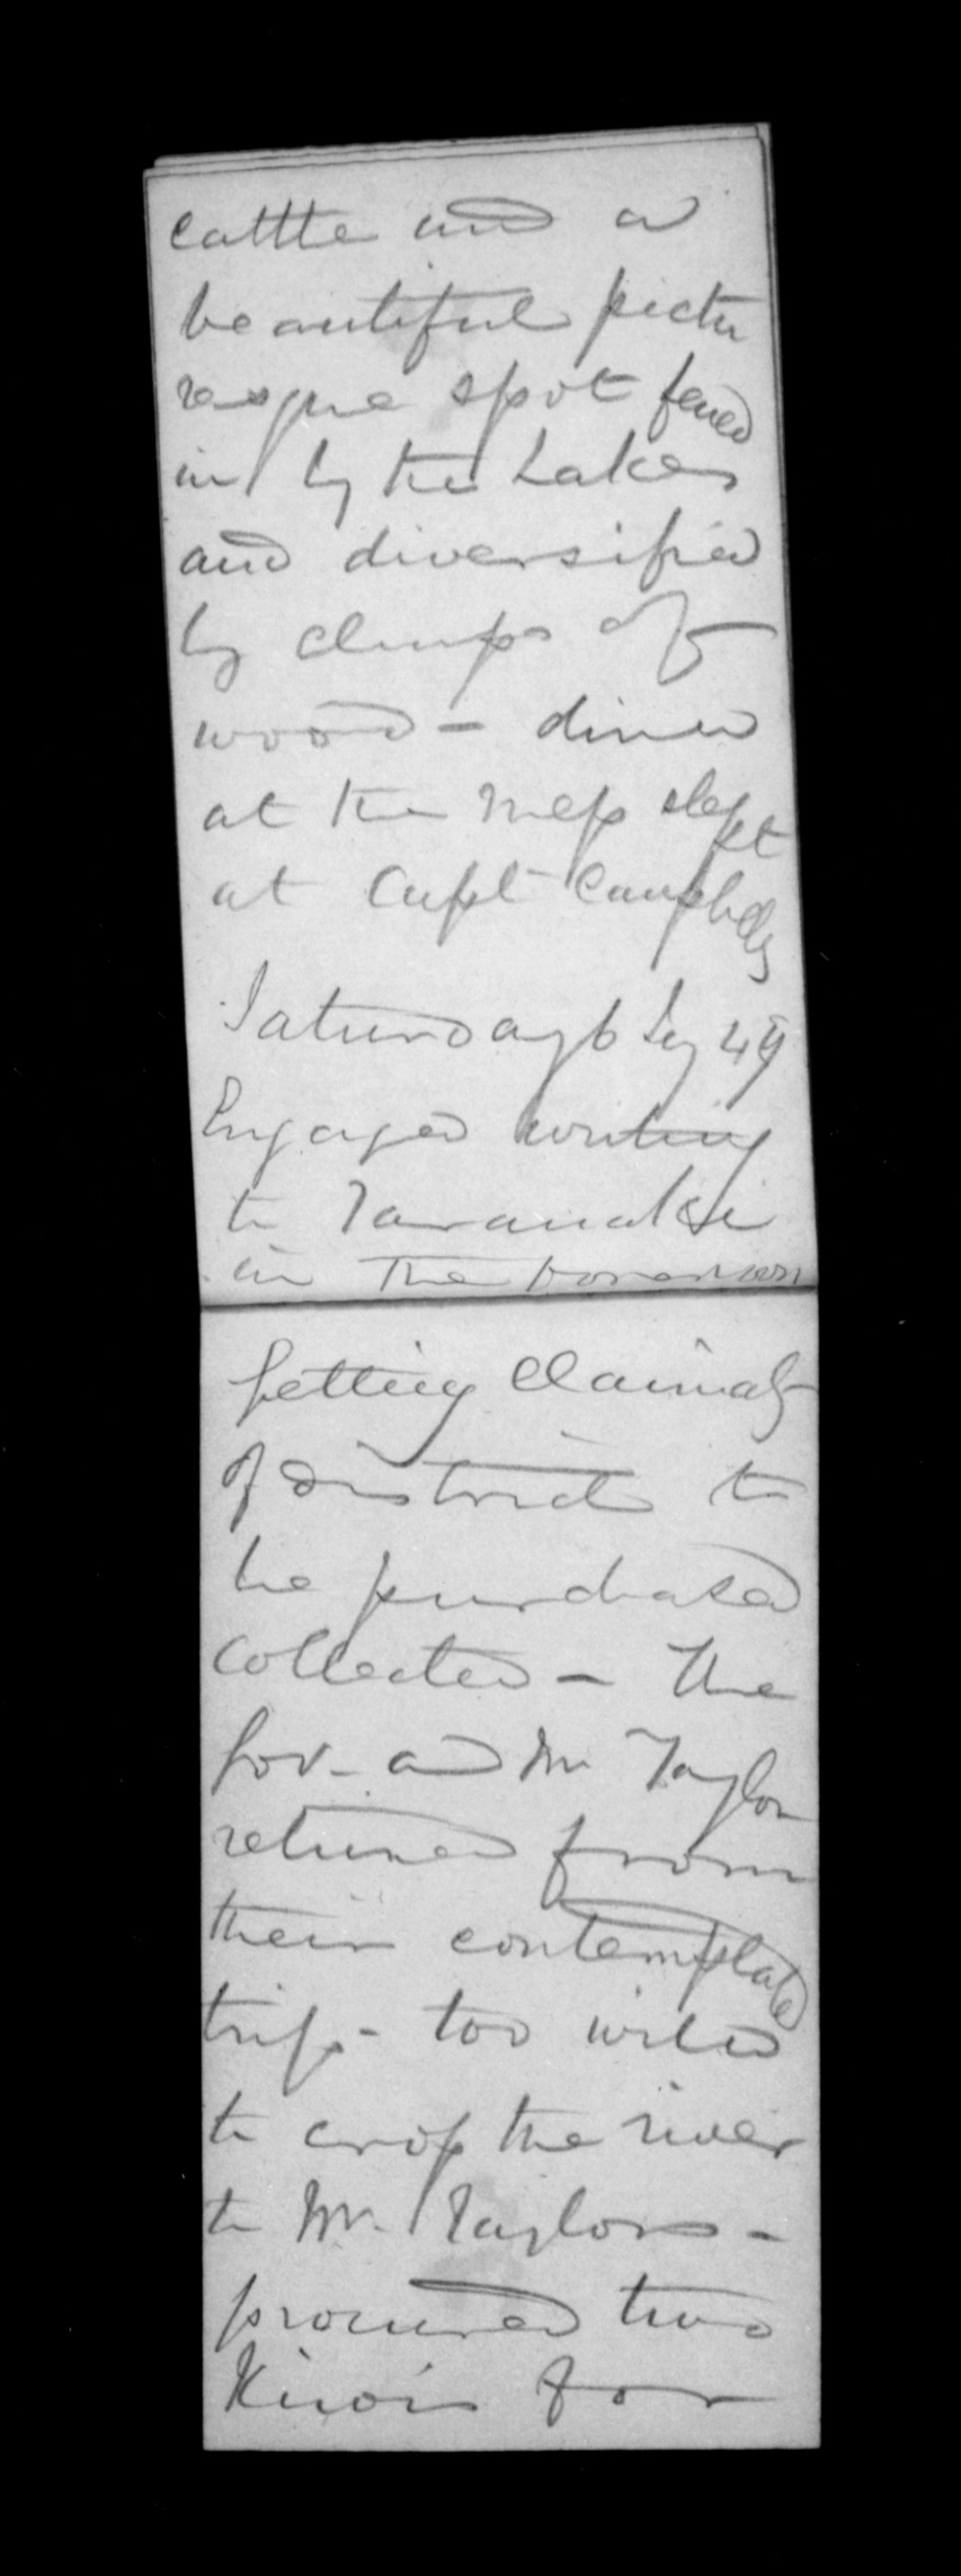 cattle and a
beautiful pictu
resque spot fenced
in by the Lakes
and diversified
by clumps of
wood - dined
at the Mess slept
at Capt Campbells
Saturday 6 49
Engaged writing
to Taranaki
in the
getting Claimants
of district to
be purchased
collected - The
Gov. and Mr Taylor
returned from
their contemplated
trip - too wild
to cross the river
to Mr. Taylors -
procured two
Kiwis for